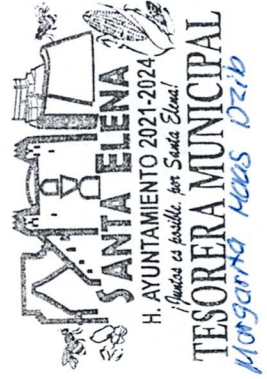 SANTA ELENA
H. AYUNTAMIENTO 2021-2024
¡Juntos es posible, por Santa Elena!
TESORERA MUNICIPAL
Margarita Haas Dzib